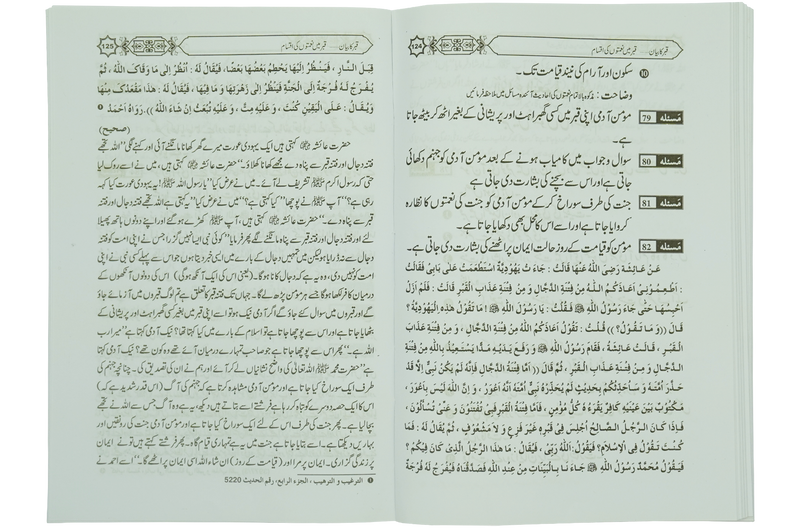 قبر کا بیان ... قبر میں نعمتوں کی اقسام
124
⑩ سکون اور آرام کی نیند قیامت تک۔
وضاحت : مذکورہ بالا تمام نعمتوں کی احادیث آئندہ مسائل میں ملاحظہ فرمائیں
مسئلہ 79 مؤمن آدمی اپنی قبر میں کسی گھبراہٹ اور پریشانی کے بغیر اٹھ کر بیٹھ جاتا
ہے۔
مسئلہ 80 سوال و جواب میں کامیاب ہونے کے بعد مؤمن آدمی کو جہنم دکھائی
جاتی ہے اور اس سے بچنے کی بشارت دی جاتی ہے
مسئلہ 81 جنت کی طرف سوراخ کر کے مؤمن آدمی کو جنت کی نعمتوں کا نظارہ
کروایا جاتا ہے اور اسے اس کا محل بھی دکھایا جاتا ہے۔
مسئلہ 82 مؤمن کو قیامت کے روز حالت ایمان پر اٹھنے کی بشارت دی جاتی ہے۔
عَنْ عَائِشَةَ رَضِيَ اللّٰهُ عَنْهَا قَالَتْ : جَاءَتْ يَهُوْدِيَّةٌ اسْتَطْعَمَتْ عَلٰى بَابِيْ فَقَالَتْ
: اَطْعِمُوْنِيْ اَعَاذَكُمُ اللّٰهُ مِنْ فِتْنَةِ الدَّجَّالِ وَ مِنْ فِتْنَةِ عَذَابِ الْقَبْرِ قَالَتْ : فَلَمْ اَزَلْ
اَحْبِسُهَا حَتّٰى جَاءَ رَسُوْلُ اللّٰهِ ﷺ فَقُلْتُ : يَا رَسُوْلَ اللّٰهِ ﷺ ! مَا تَقُوْلُ هٰذِهِ الْيَهُوْدِيَّةُ ؟
قَالَ (( وَ مَا تَقُوْلُ ؟ )) قُلْتُ : تَقُوْلُ اَعَاذَكُمُ اللّٰهُ مِنْ فِتْنَةِ الدَّجَّالِ ، وَ مِنْ فِتْنَةِ عَذَابِ
الْقَبْرِ ، قَالَتْ عَائِشَةُ ، فَقَامَ رَسُوْلُ اللّٰهِ ﷺ وَ رَفَعَ يَدَيْهِ مَدًّا يَسْتَعِيْذُ بِاللّٰهِ مِنْ فِتْنَةِ
الدَّجَّالِ وَ مِنْ فِتْنَةِ عَذَابِ الْقَبْرِ ثُمَّ قَالَ (( اَمَّا فِتْنَةُ الدَّجَّالِ فَاِنَّهُ لَمْ يَكُنْ نَبِيٌّ اِلَّا قَدْ
حَذَّرَ اُمَّتَهُ وَ سَاُحَدِّثُكُمْ بِحَدِيْثٍ لَمْ يُحَذِّرْهُ نَبِيٌّ اُمَّتَهُ اَنَّهُ اَعْوَرُ ، وَ اِنَّ اللّٰهَ لَيْسَ بِاَعْوَرَ ،
مَكْتُوْبٌ بَيْنَ عَيْنَيْهِ كَافِرٌ يَقْرَؤُهُ كُلُّ مُؤْمِنٍ ، فَاَمَّا فِتْنَةُ الْقَبْرِ فَبِيْ تُفْتَنُوْنَ وَ عَنِّيْ تُسْاَلُوْنَ ،
فَاِذَا كَانَ الرَّجُلُ الصَّالِحُ اُجْلِسَ فِيْ قَبْرِهِ غَيْرَ فَزِعٍ وَ لَا مَشْعُوْفٍ ، ثُمَّ يُقَالُ لَهُ : فَمَا
كُنْتَ تَقُوْلُ فِي الْاِسْلَامِ ؟ فَيَقُوْلُ : اَللّٰهُ رَبِّيْ ، فَيُقَالُ : مَا هٰذَا الرَّجُلُ الَّذِيْ كَانَ فِيْكُمْ ؟
فَيَقُوْلُ مُحَمَّدٌ رَسُوْلُ اللّٰهِ ﷺ جَاءَنَا بِالْبَيِّنَاتِ مِنْ عِنْدِ اللّٰهِ فَصَدَّقْنَاهُ فَيُفْرَجُ لَهُ فُرْجَةٌ
قبر کا بیان ... قبر میں نعمتوں کی اقسام
125
قِبَلَ النَّارِ ، فَيَنْظُرُ اِلَيْهَا يَحْطِمُ بَعْضُهَا بَعْضًا، فَيُقَالُ لَهُ : اُنْظُرْ اِلٰى مَا وَقَاكَ اللّٰهُ ، ثُمَّ
يُفْرَجُ لَهُ فُرْجَةٌ اِلَى الْجَنَّةِ فَيَنْظُرُ اِلٰى زَهْرَتِهَا وَ مَا فِيْهَا ، فَيُقَالُ لَهُ : هٰذَا مَقْعَدُكَ مِنْهَا
وَ يُقَالُ : عَلَى الْيَقِيْنِ كُنْتَ ، وَ عَلَيْهِ مِتَّ ، وَ عَلَيْهِ تُبْعَثُ اِنْ شَاءَ اللّٰهُ )). رَوَاهُ اَحْمَدُ ❶
(صحیح)
حضرت عائشہ کہتی ہیں ایک یہودی عورت میرے گھر کھانا مانگنے آئی اور کہنے لگی "اللہ تجھے
فتنہ دجال اور فتنہ قبر سے پناہ دے مجھے کھانا کھلاؤ۔" حضرت عائشہ کہتی ہیں، میں نے اسے روک لیا
حتی کہ رسول اکرم ﷺ تشریف لے آئے۔ میں نے عرض کیا "یا رسول اللہ ﷺ! یہ یہودی عورت کیا کہہ
رہی ہے؟" آپ ﷺ نے پوچھا "کیا کہتی ہے؟" میں نے عرض کیا "یہ کہتی ہے اللہ تجھے فتنہ دجال اور فتنہ
قبر سے پناہ دے۔" حضرت عائشہ کہتی ہیں، آپ ﷺ کھڑے ہو گئے اور اپنے دونوں ہاتھ پھیلا
لئے اور فتنہ دجال اور فتنہ قبر سے پناہ مانگنے لگے پھر فرمایا "کوئی نبی ایسا نہیں گزرا جس نے اپنی امت کو فتنہ
دجال سے نہ ڈرایا ہو لیکن میں تمہیں دجال کے بارے میں ایسی خبر دیتا ہوں جو اس سے پہلے کسی نبی نے اپنی
امت کو نہیں دی، وہ یہ ہے کہ دجال کانا ہو گا۔ (یعنی اس کی ایک آنکھ ہوگی) اس کی دونوں آنکھوں کے
درمیان کافر لکھا ہو گا جسے ہر مؤمن پڑھ لے گا۔ جہاں تک فتنہ قبر کا تعلق ہے تم لوگ قبروں میں آزمائے جاؤ
گے اور قبروں میں سوال کئے جاؤ گے اگر آدمی نیک ہو تو اسے اپنی قبر میں بغیر کسی گھبراہٹ اور پریشانی کے
بٹھایا جاتا ہے اور اس سے پوچھا جاتا ہے تو اسلام کے بارے میں کیا کہتا تھا؟ نیک آدمی کہتا ہے "میرا رب
اللہ ہے۔" پھر اس سے پوچھا جاتا ہے جو صاحب تمہارے درمیان آئے تھے وہ کون تھے؟ نیک آدمی کہتا
ہے "حضرت محمد ﷺ اللہ تعالی کی واضح نشانیاں لے کر آئے اور ہم نے ان کی تصدیق کی۔ چنانچہ جہنم کی
طرف ایک سوراخ کیا جاتا ہے اور مؤمن آدمی مشاہدہ کرتا ہے کہ جہنم کی آگ (اس قدر شدید ہے کہ)
اس کا ایک حصہ دوسرے کو تباہ کر رہا ہے فرشتے اسے بتاتے ہیں دیکھو، یہ ہے وہ آگ جس سے اللہ نے تجھے
بچا لیا ہے۔ پھر جنت کی طرف سے اس کے لئے ایک سوراخ کیا جاتا ہے اور مؤمن آدمی جنت کی رونقیں اور
بہاریں دیکھتا ہے۔ اسے بتایا جاتا ہے جنت میں یہ ہے تمہاری قیام گاہ۔ پھر فرشتے کہتے ہیں تو نے ایمان
پر زندگی گزاری۔ ایمان پر مرا اور (قیامت کے روز) ان شاء اللہ اسی ایمان پر اٹھے گا۔" اسے احمد نے
❶ الترغيب و الترهيب ، الجزء الرابع، رقم الحديث 5220